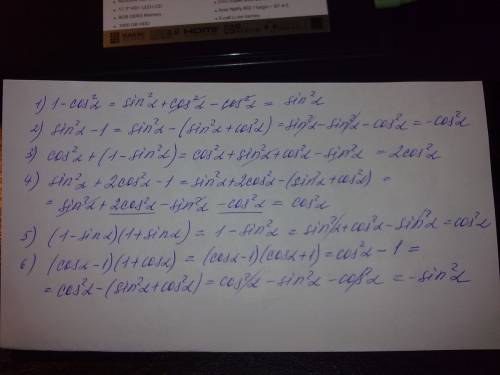 HDMI
1) 1-cos²α = sin²α+cos²α-cos²α = sin²α
2) sin²α-1 = sin²α-(sin²α+cos²α)=sin²α-sin²α-cos²α=-cos²α
3) cos²α+(1-sin²α)=cos²α+sin²α+cos²α-sin²α=2cos²α
4) sin²α+2cos²α-1=sin²α+2cos²α-(sin²α+cos²α)=
=sin²α+2cos²α-sin²α-cos²α=cos²α
5) (1-sinα)(1+sinα)=1-sin²α=sin²α+cos²α-sin²α=cos²α
6) (cosα-1)(1+cosα)=(cosα-1)(cosα+1)=cos²α-1=
=cos²α-(sin²α+cos²α)=cos²α-sin²α-cos²α=-sin²α